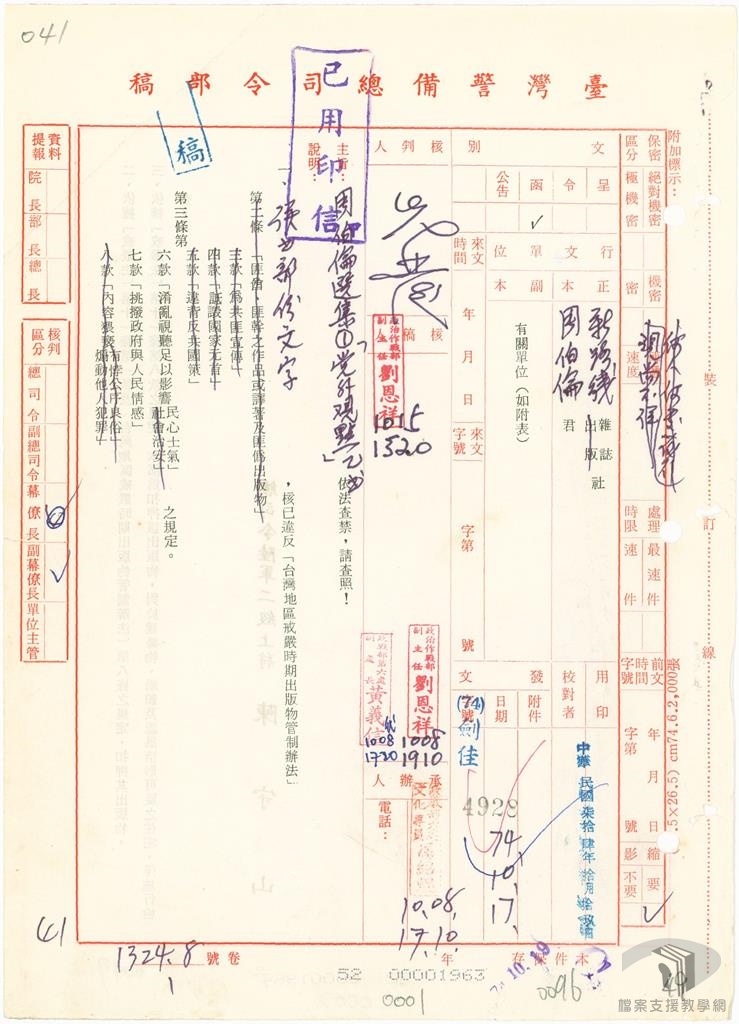 041
臺灣警備總司令部稿
已用印信
稿
附加標示：
保密區分
絕對機密
極機密
機密
密
速度
處理時限
最速件
速件
前文時間字號
年月日
字第
號
縮影
要
不要
文別
呈
令
函
公告
行文單位
正本
副本
新路線
雜誌社
出版
周伯倫
君
有關單位（如附表）
來文時間
年月日
來文字號
字第
號
發文
用印
校對者
附件
日期
字號
(74)劍佳
4928
74.10.17.
中華民國柒拾肆年拾月拾玖
核判人
核稿人
政治作戰部副主任劉恩祥
1015
1520
政治作戰部副主任劉恩祥
1008
1910
政戰部第六處副處長黃義
代
1008
1720
承辦人
電話：
10.08.
17.10.
主旨：
周伯倫選集①「党外观點」乙書
依法查禁，請查照！
說明：
一、張女部份文字
，核已違反「台灣地區戒嚴時期出版物管制辦法」
第二條「匪酋、匪幹之作品或譯著及匪偽出版物」
第三條第
三款「為共匪宣傳」
四款「詆譭國家元首」
五款「違背反共國策」
六款「淆亂視聽足以影響民心士氣」社會治安」
七款「挑撥政府與人民情感」
八款「內容猥褻有悖公序良俗」煽動他人犯罪」
之規定。
資料提報
院長
部長
總長
核判區分
總司令
副總司令
幕僚長
副幕僚長
單位主管
裝
訂
線
61
1324.8
1
卷號
年存保件本
52 00001963
0001
10.19
0096
49
檔案支援教學網